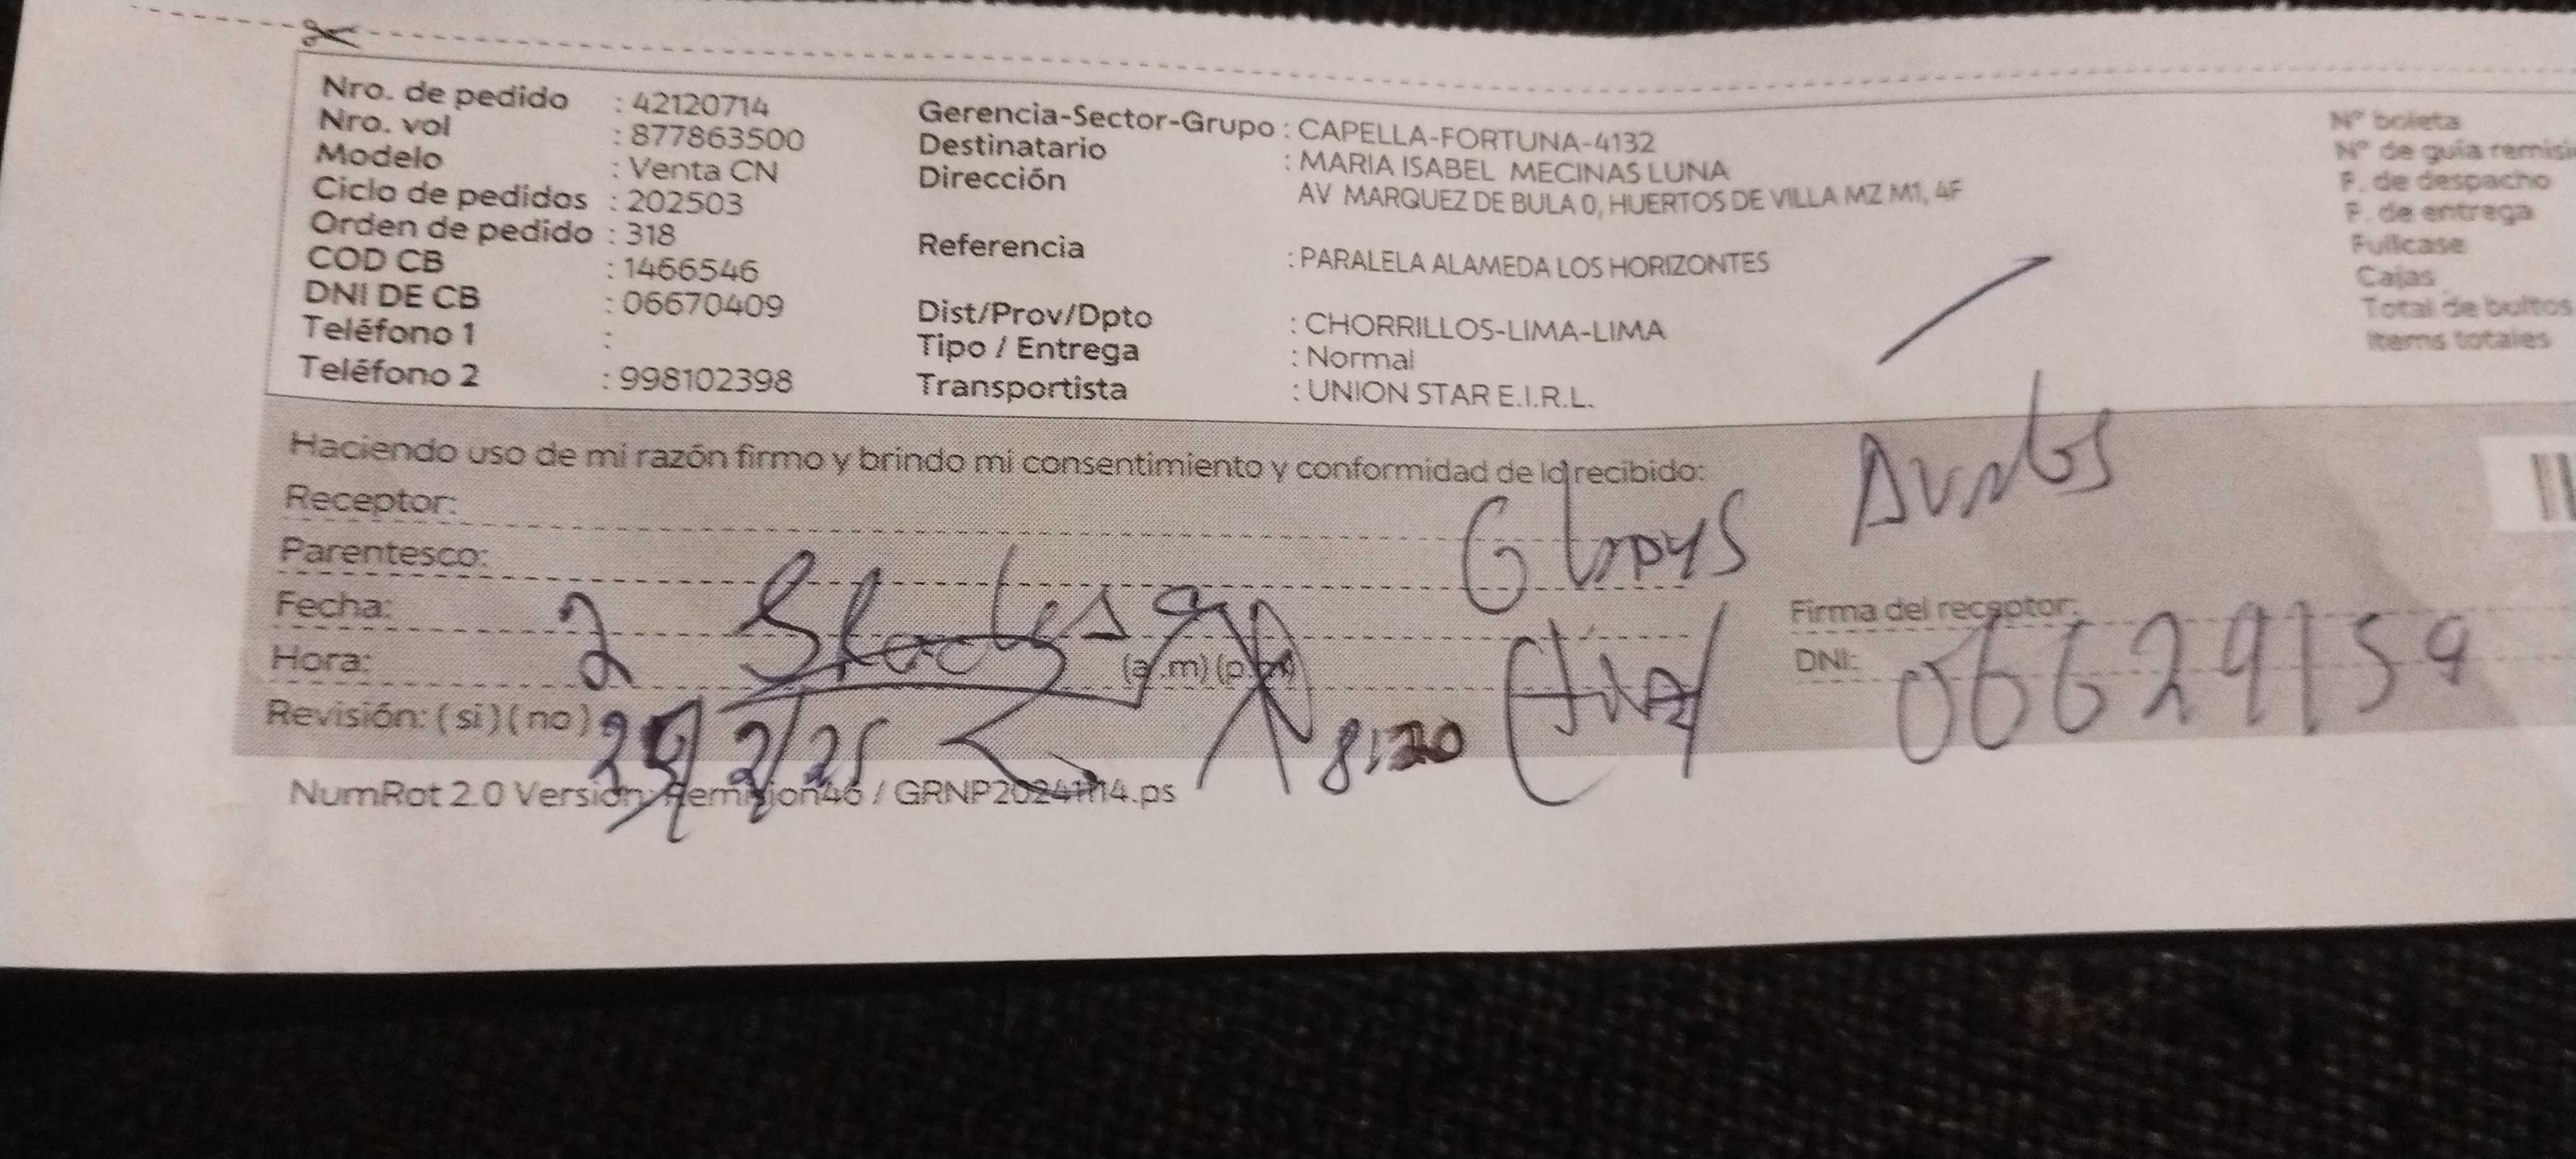 Nro. de pedido : 42120714
Nro. vol : 877863500
Modelo : Venta CN
Ciclo de pedidos : 202503
Orden de pedido : 318
COD CB : 1466546
DNI DE CB : 06670409
Teléfono 1 :
Teléfono 2 : 998102398
Gerencia-Sector-Grupo : CAPELLA-FORTUNA-4132
Destinatario : MARIA ISABEL MECINAS LUNA
Dirección AV MARQUEZ DE BULA 0, HUERTOS DE VILLA MZ M1, 4F
Referencia : PARALELA ALAMEDA LOS HORIZONTES
Dist/Prov/Dpto : CHORRILLOS-LIMA-LIMA
Tipo / Entrega : Normal
Transportista : UNION STAR E.I.R.L.
Nº boleta
Nº de guía remisi
F. de despacho
F. de entrega
Fullcase
Cajas
Total de bultos
Items totales
Haciendo uso de mi razón firmo y brindo mi consentimiento y conformidad de lo recibido:
Receptor:
Parentesco:
Fecha: 2
Hora: (a.m) (p.m)
Revisión: ( si ) ( no ) 2/25 8:20
Firma del receptor:
DNI: 06629159
NumRot 2.0 Version: Remision46 / GRNP20241114.ps